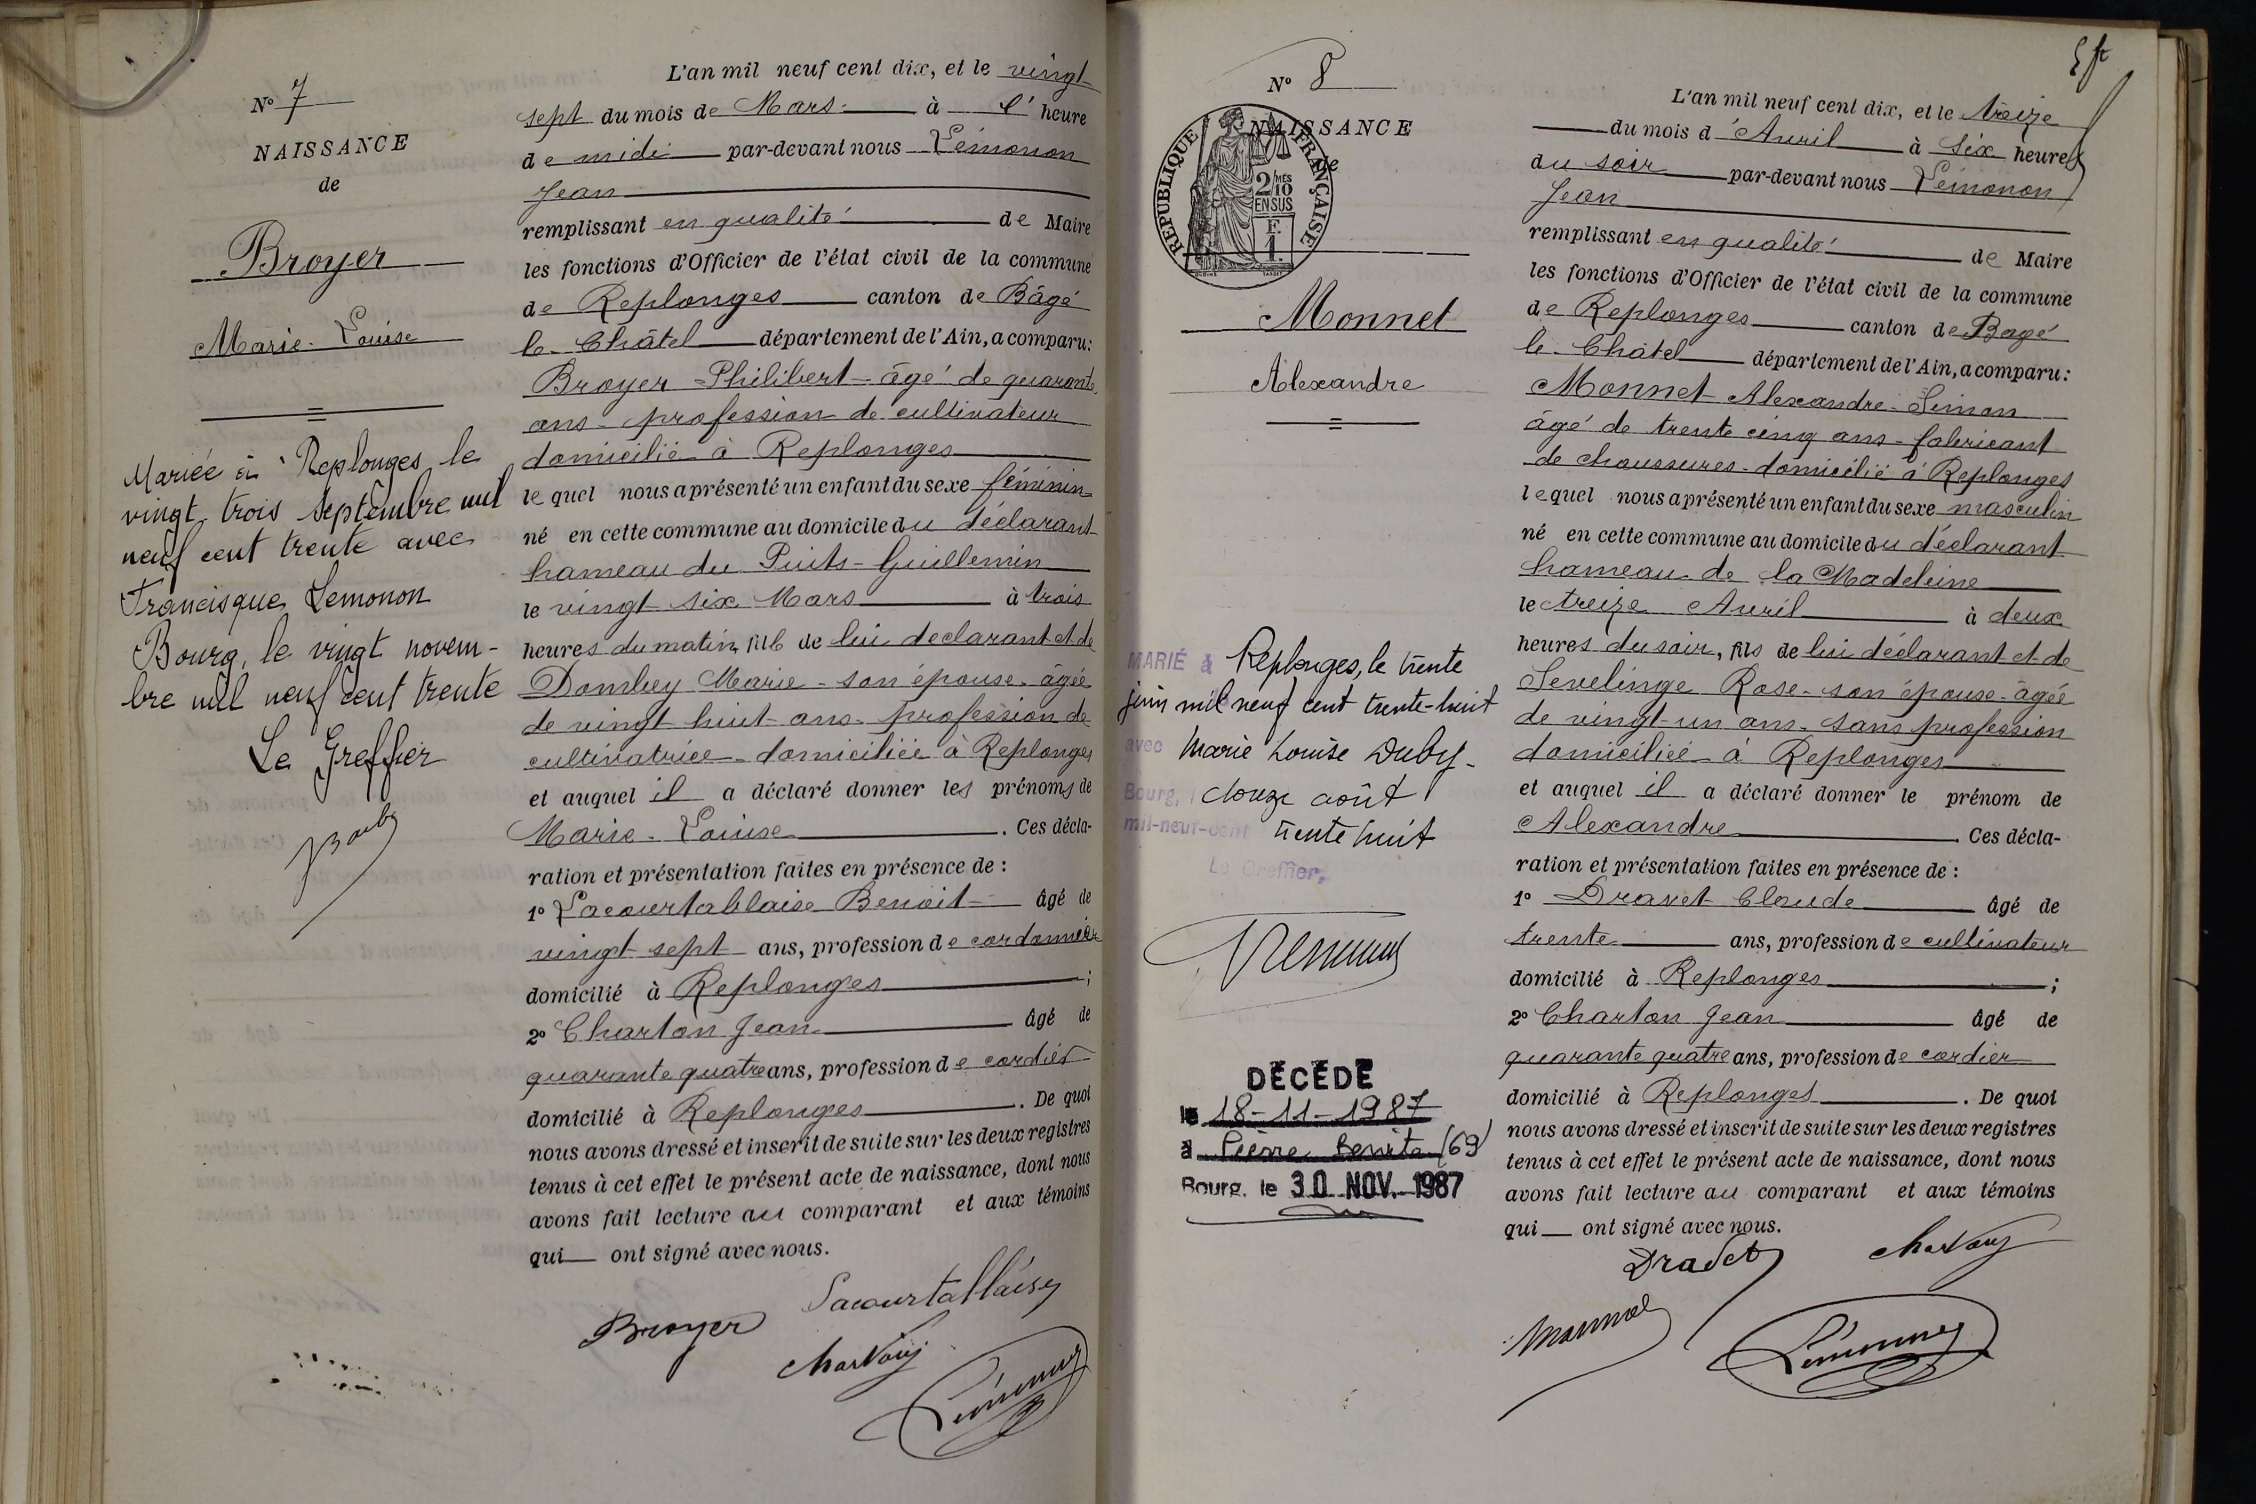 N° 7
NAISSANCE
de
Broyer
Marie-Louise
Mariée à Replonges le
vingt trois Septembre mil
neuf cent trente avec
Francisque Lemonon
Bourg, le vingt novem-
bre mil neuf cent trente
Le Greffier
L'an mil neuf cent dix, et le vingt
sept du mois de Mars à l' heure
de midi par-devant nous Lémonon
Jean
remplissant en qualité de Maire
les fonctions d'Officier de l'état civil de la commune
de Replonges canton de Bâgé
le Châtel département de l'Ain, a comparu:
Broyer Philibert âgé de quarante
ans - profession de cultivateur
domicilié à Replonges
lequel nous a présenté un enfant du sexe féminin
né en cette commune au domicile du déclarant
hameau du Puits-Guillemin
le vingt six Mars à trois
heures du matin, fille de lui declarant et de
Dombey Marie - son épouse - âgée
de vingt huit ans - profession de
cultivatrice - domiciliée à Replonges
et auquel il a déclaré donner les prénoms de
Marie-Louise . Ces décla-
ration et présentation faites en présence de :
1° Lacourtablaise Benoit âgé de
vingt sept ans, profession de cordonnier
domicilié à Replonges ;
2° Charton Jean âgé de
quarante quatre ans, profession de cordier
domicilié à Replonges . De quoi
nous avons dressé et inscrit de suite sur les deux registres
tenus à cet effet le présent acte de naissance, dont nous
avons fait lecture au comparant et aux témoins
qui — ont signé avec nous.
Lacourtablaise
Broyer
Charton
Lémonon
5 ft
N° 8
NAISSANCE
de
RÉPUBLIQUE FRANÇAISE
2/10 MES
EN SUS
F.
1.
Monnet
Alexandre
MARIÉ à Replonges, le trente
juin mil neuf cent trente-huit
avec Marie Louise Duby -
Bourg, l douze août
mil-neuf-cent trente huit
Le Greffier,
DÉCÉDÉ
le 18-11-1987
à Pierre Bénite (69)
Bourg, le 30 NOV. 1987
L'an mil neuf cent dix, et le treize
du mois d'Avril à six heures
du soir par-devant nous Lémonon
Jean
remplissant en qualité de Maire
les fonctions d'Officier de l'état civil de la commune
de Replonges canton de Bagé
le Châtel département de l'Ain, a comparu:
Monnet Alexandre-Simon
âgé de trente cinq ans - fabricant
de chaussures - domicilié à Replonges
lequel nous a présenté un enfant du sexe masculin
né en cette commune au domicile du déclarant
hameau de la Madeleine
le treize Avril à deux
heures du soir, fils de lui déclarant et de
Sevelinge Rose - son épouse - âgée
de vingt-un ans - sans profession
domiciliée à Replonges
et auquel il a déclaré donner le prénom de
Alexandre . Ces décla-
ration et présentation faites en présence de :
1° Dravet Claude âgé de
trente ans, profession de cultivateur
domicilié à Replonges ;
2° Charton Jean âgé de
quarante quatre ans, profession de cordier
domicilié à Replonges . De quoi
nous avons dressé et inscrit de suite sur les deux registres
tenus à cet effet le présent acte de naissance, dont nous
avons fait lecture au comparant et aux témoins
qui — ont signé avec nous.
Dravet
Charton
Monnet
Lémonon